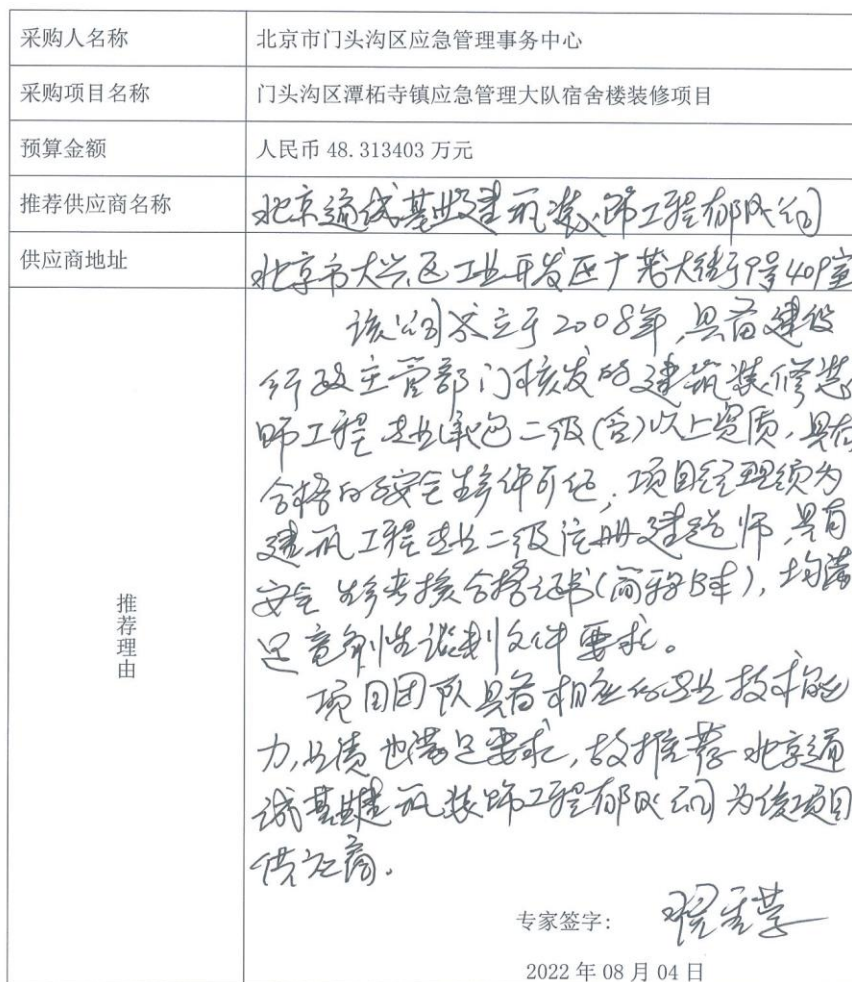 采购人名称 北京市门头沟区应急管理事务中心
采购项目名称 门头沟区潭柘寺镇应急管理大队宿舍楼装修项目
预算金额 人民币 48.313403 万元
推荐供应商名称 北京通成基业建筑装饰工程有限公司
供应商地址 北京市大兴区工业开发区广茂大街9号409室
推荐理由
该公司成立于2008年,具备建设
行政主管部门核发的建筑装修装
饰工程专业承包二级(含)以上资质,具有
合格的安全生产许可证,项目经理须为
建筑工程专业二级注册建造师,具有
安全生产考核合格证书(简称B本),均满
足竞争性谈判文件要求。
项目团队具备相应的专业技术能
力,业绩也满足要求,故推荐北京通
成基业建筑装饰工程有限公司为该项目
供应商。
专家签字:
2022 年 08 月 04 日